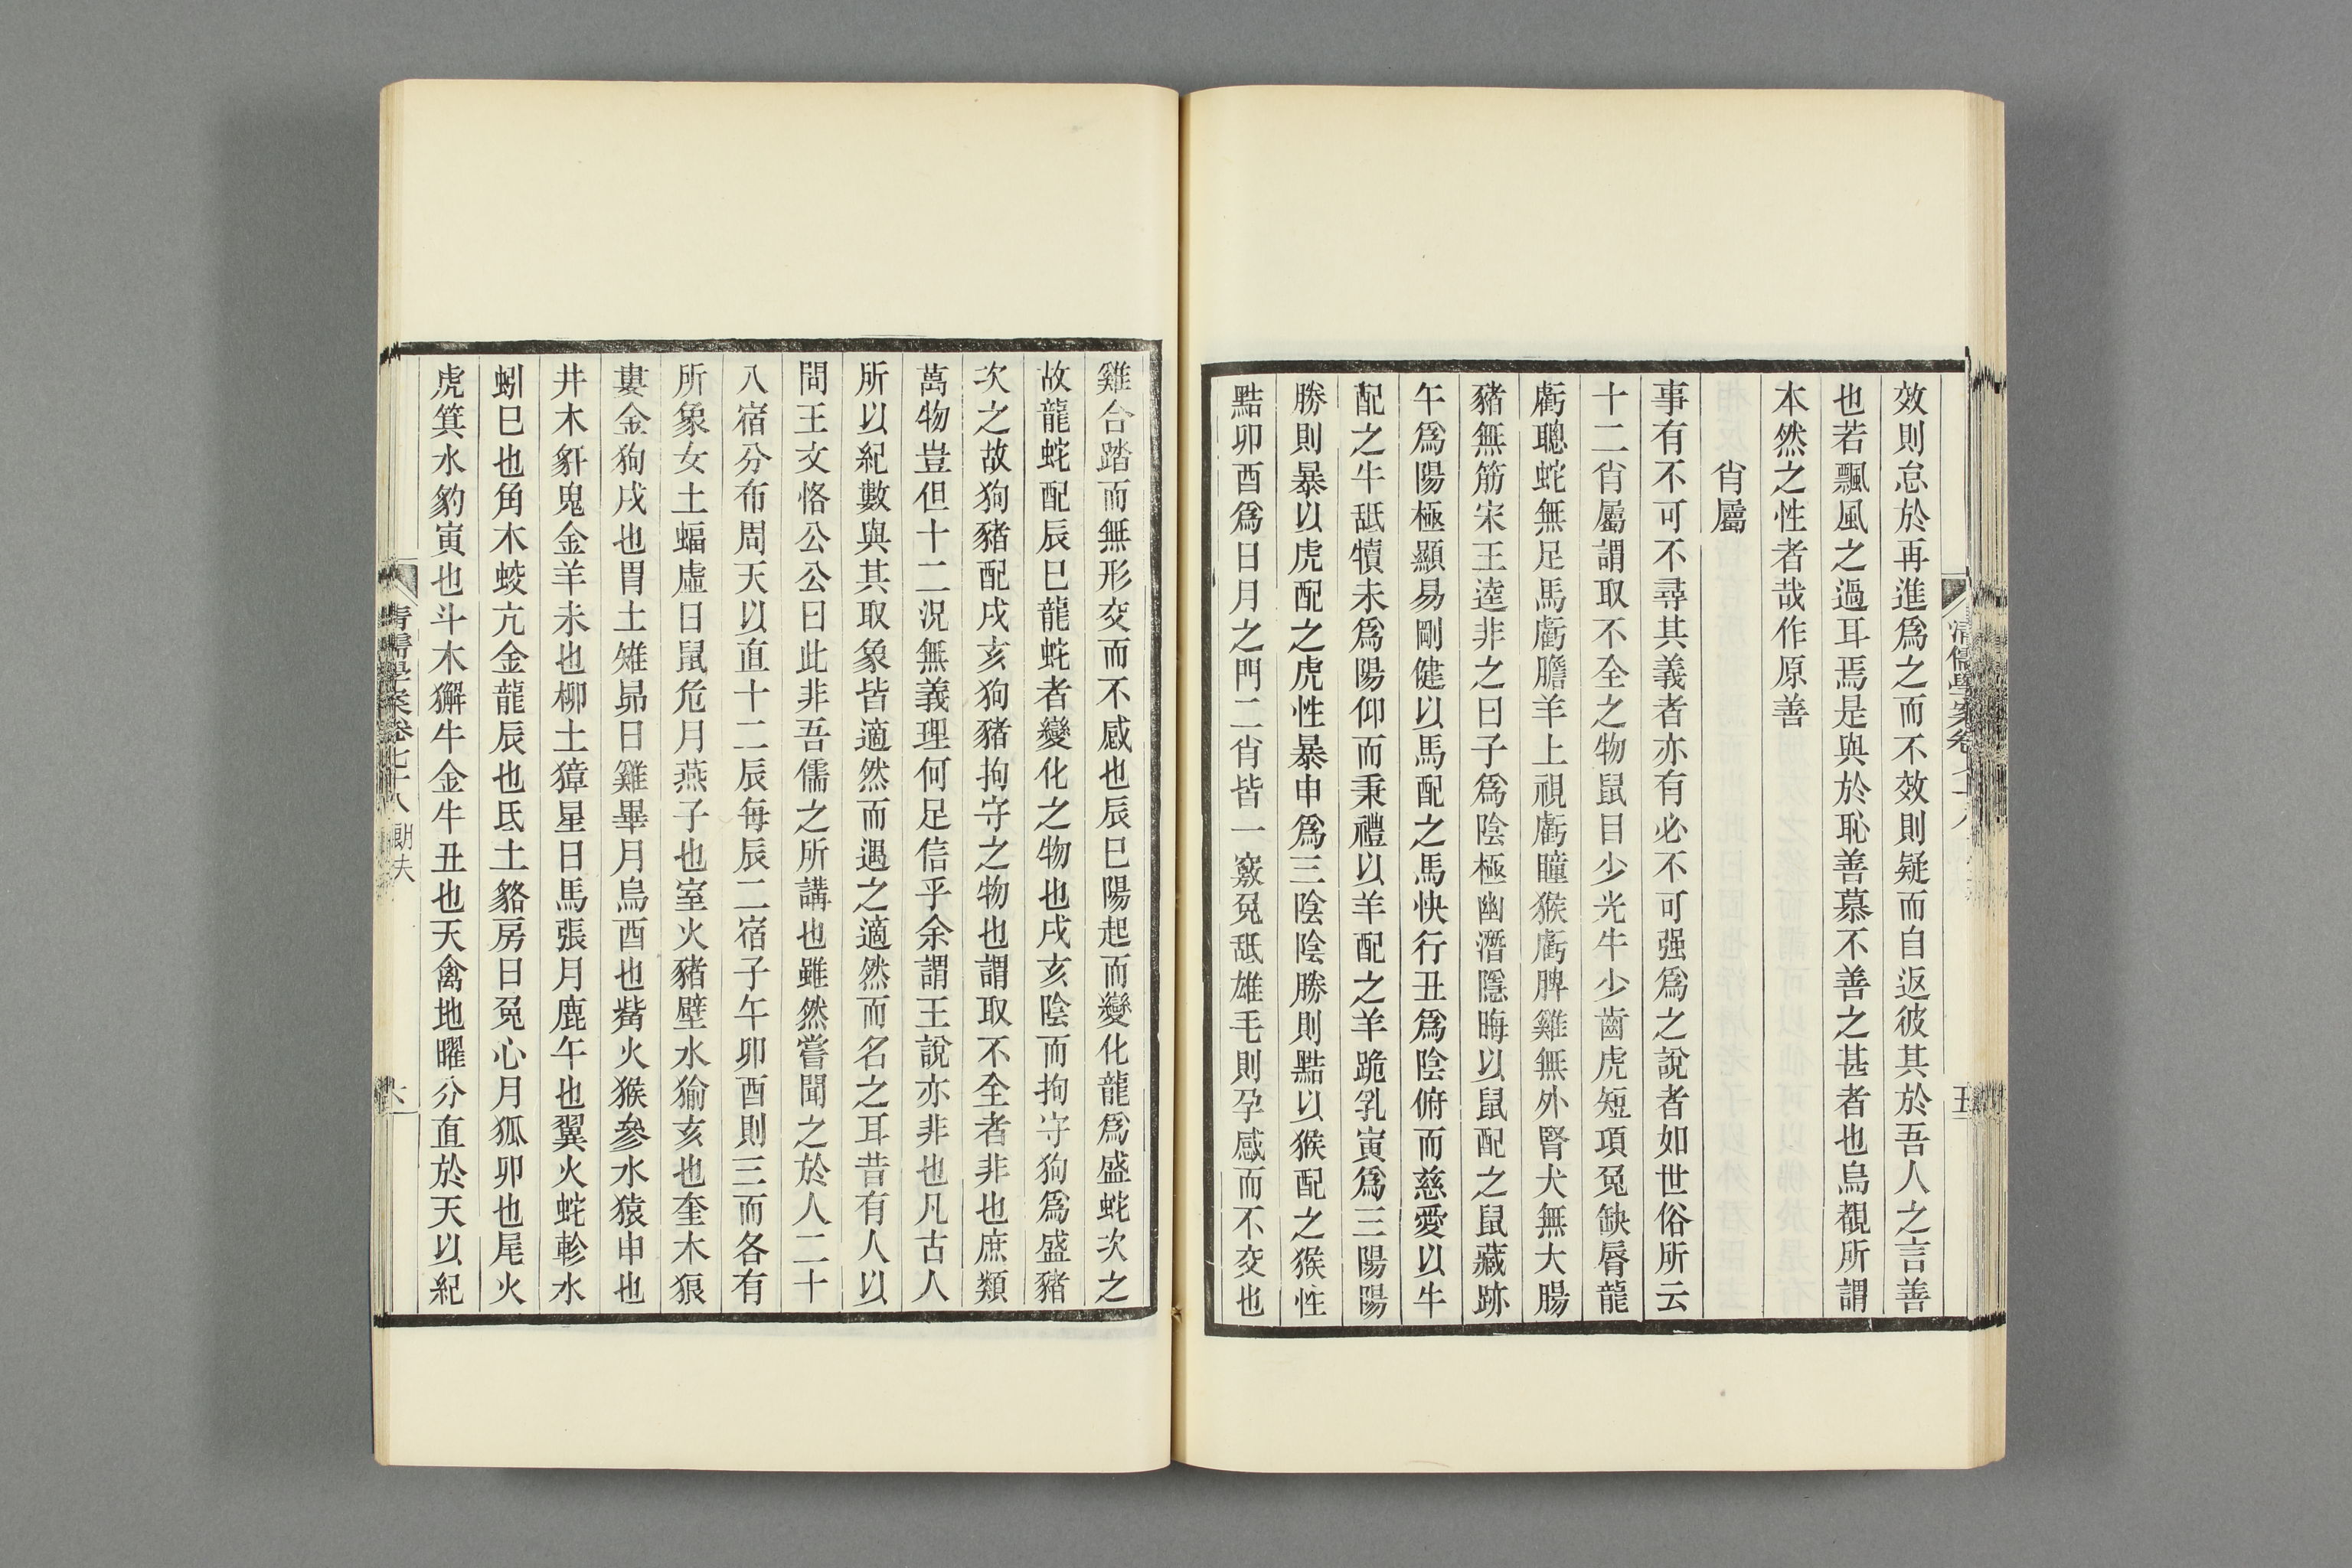 效則怠於再進爲之而不效則疑而自返彼其於吾人之言善
也若飄風之過耳焉是與於恥善慕不善之甚者也烏覩所謂
本然之性者哉作原善
肖屬
事有不可不尋其義者亦有必不可强爲之說者如世俗所云
十二肖屬謂取不全之物鼠目少光牛少齒虎短項兔缺脣龍
虧聰蛇無足馬虧膽羊上視虧瞳猴虧脾雞無外腎犬無大腸
豬無筋宋王逵非之曰子爲陰極幽潛隱晦以鼠配之鼠藏跡
午爲陽極顯易剛健以馬配之馬快行丑爲陰俯而慈愛以牛
配之牛舐犢未爲陽仰而秉禮以羊配之羊跪乳寅爲三陽陽
勝則暴以虎配之虎性暴申爲三陰陰勝則黠以猴配之猴性
黠卯酉爲日月之門二肖皆一竅兔舐雄毛則孕感而不交也
雞合踏而無形交而不感也辰巳陽起而變化龍爲盛蛇次之
故龍蛇配辰巳龍蛇者變化之物也戌亥陰而拘守狗爲盛豬
次之故狗豬配戌亥狗豬拘守之物也謂取不全者非也庶類
萬物豈但十二況無義理何足信乎余謂王說亦非也凡古人
所以紀數與其取象皆適然而遇之適然而名之耳昔有人以
間王文恪公公曰此非吾儒之所講也雖然嘗聞之於人二十
八宿分布周天以直十二辰每辰二宿子午卯酉則三而各有
所象女土蝠虛日鼠危月燕子也室火豬壁水㺄亥也奎木狼
婁金狗戌也胃土雉昴日雞畢月烏酉也觜火猴參水猿申也
井木犴鬼金羊未也柳土獐星日馬張月鹿午也翼火蛇軫水
蚓巳也角木蛟亢金龍辰也氐土貉房日兔心月狐卯也尾火
虎箕水豹寅也斗木獬牛金牛丑也天禽地曜分直於天以紀
清儒學案卷七十八 朗夫